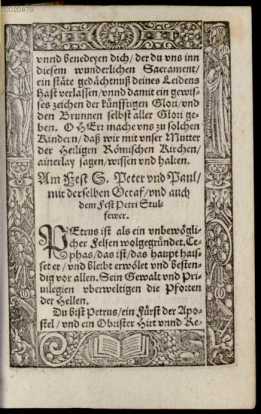 vnnd benedeyen dich/ der du vns inn
diesem wunderlichen Sacrament/
ein stäte gedächtnuß deines Leidens
hast verlassen/ vnnd damit ein gewis-
ses zeichen der künfftigen Glori/ vnd
den Brunnen selbst aller Glori ge-
ben. O HErr mache vns zu solchen
Kindern/ daß wir mit vnser Mutter
der Heiligen Römischen Kirchen/
ainerlay sagen/ wissen vnd halten.
Am Fest S. Peter vnd Paul/
mit derselben Octaf/ vnd auch
dem Fest Petri Stul-
fewer.
PEtrus ist als ein vnbewögli-
cher Felsen wolgegründet. Ce-
phas/ das ist/ das haupt hais-
set er/ vnd bleibt erwölet vnd besten-
dig vor allen. Sein Gewalt vnd Pri-
uilegien vberweltigen die Pforten
der Hellen.
Du bist Petrus/ ein Fürst der Apo-
stel/ vnd ein Obrister Hirt vnnd Re-